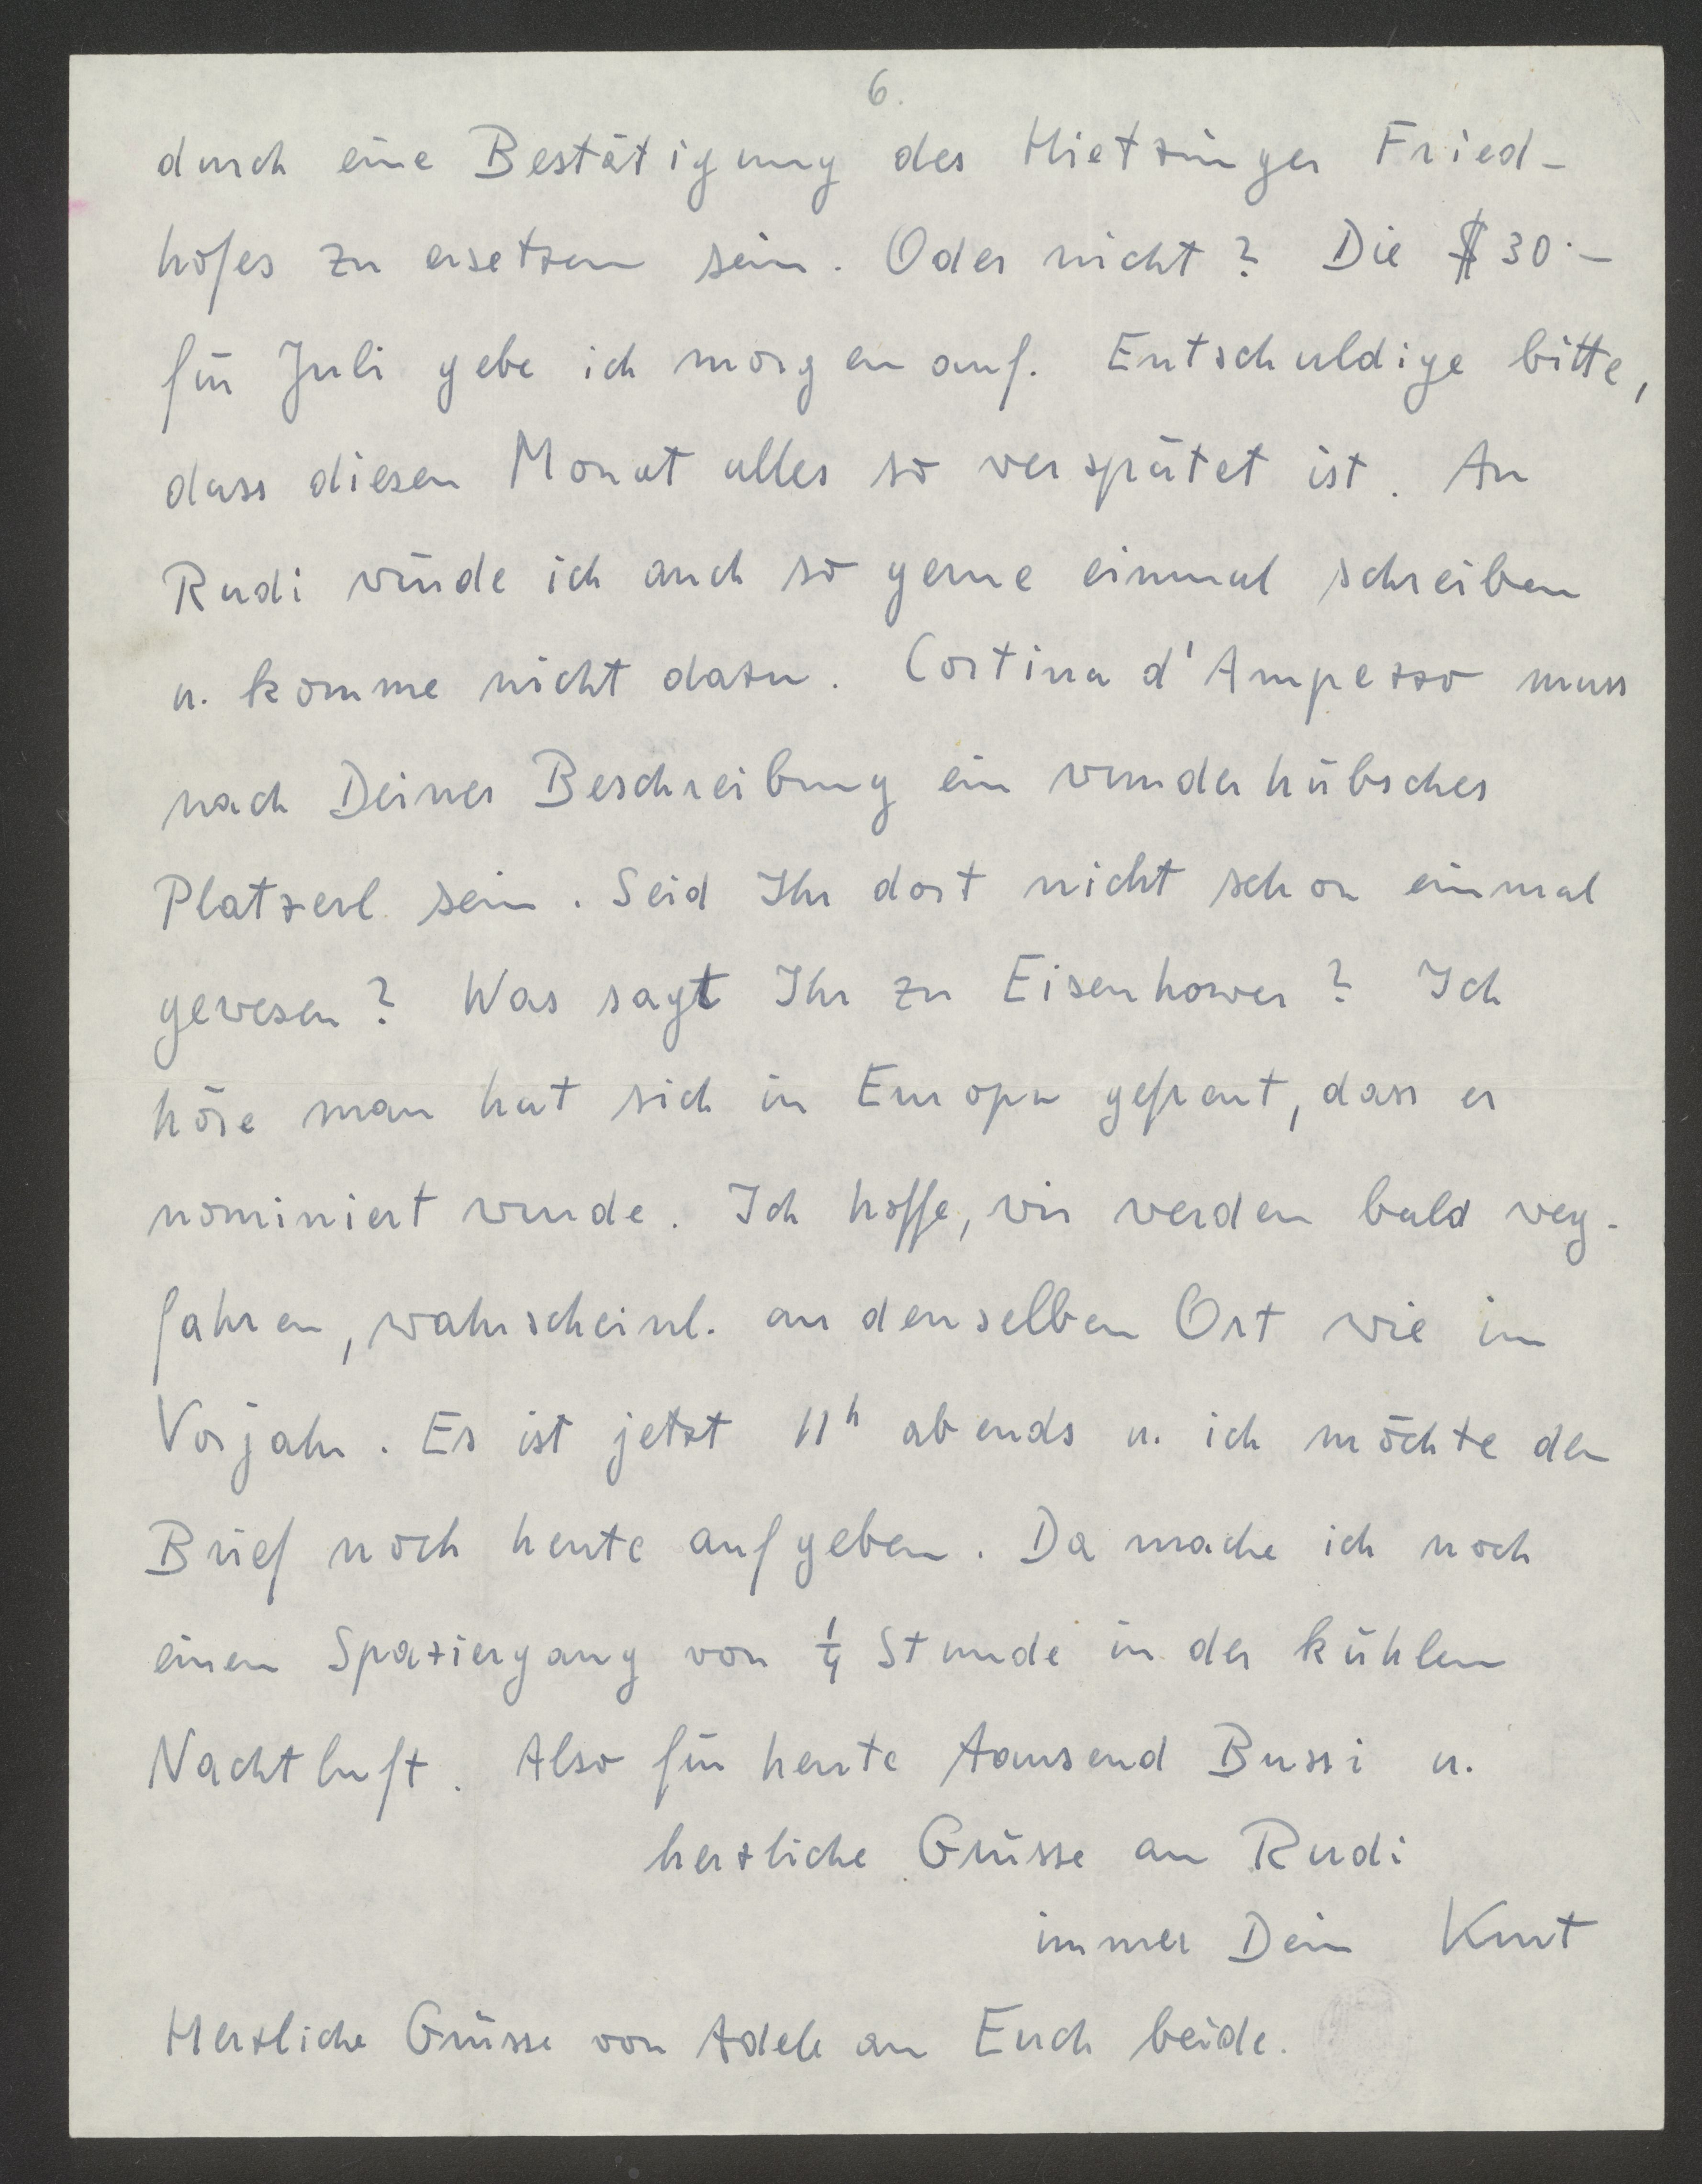 6.
durch eine Bestätigung des Hietzinger Fried-
hofes zu ersetzen sein. Oder nicht? Die $30·–
für Juli gebe ich morgen auf. Entschuldige bitte,
dass diesen Monat alles so verspätet ist. An
Rudi würde ich auch so gerne einmal schreiben
u. komme nicht dazu. Cortina d'Ampezzo muss
nach Deiner Beschreibung ein wunderhübsches
Platzerl sein. Seid Ihr dort nicht schon einmal
gewesen? Was sagt Ihr zu Eisenhower? Ich
höre man hat sich in Europa gefreut, dass er
nominiert wurde. Ich hoffe, wir werden bald weg-
fahren, wahrscheinl. an denselben Ort wie im
Vorjahr. Es ist jetzt 11h abends u. ich möchte den
Brief noch heute aufgeben. Da mache ich noch
einen Spaziergang von ¼ Stunde in der kühlen
Nachtluft. Also für heute tausend Bussi u.
herzliche Grüsse an Rudi
immer Dein Kurt
Herzliche Grüsse von Adele an Euch beide.